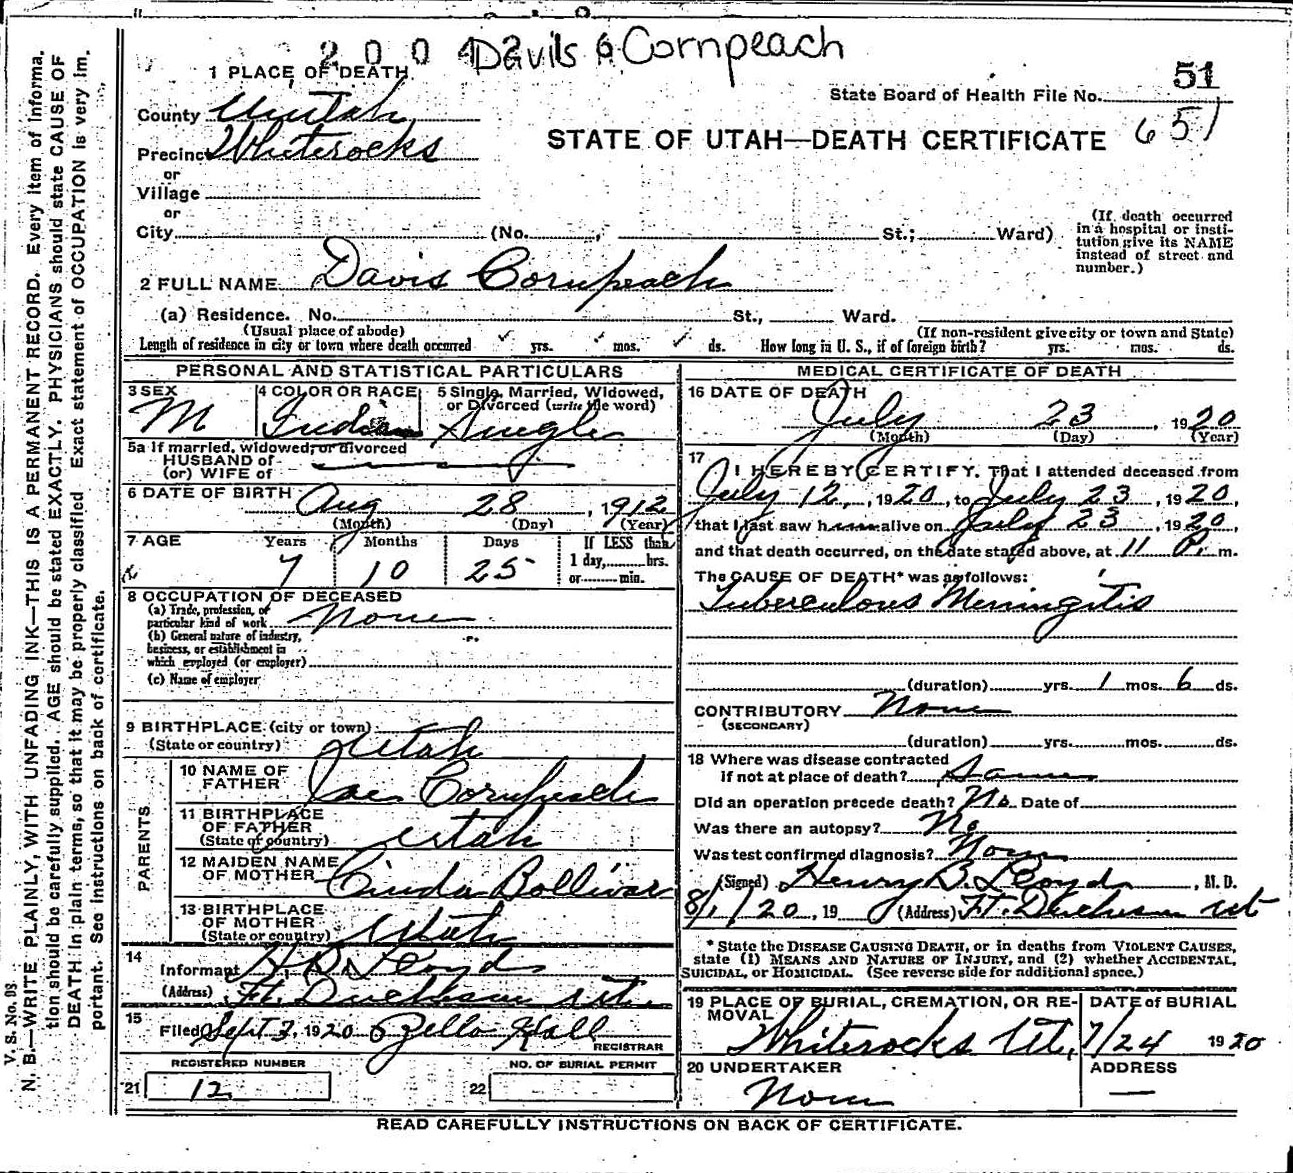 2 0 0 4 2 Davils & Cornpeach
1 PLACE OF DEATH
51
State Board of Health File No.
County Uintah
STATE OF UTAH—DEATH CERTIFICATE 651
Precinct Whiterocks
or
Village
or
City (No. , St.; Ward)
(If death occurred in a hospital or institution give its NAME instead of street and number.)
2 FULL NAME Davis Cornpeach
(a) Residence. No. St., Ward.
(Usual place of abode) (If non-resident give city or town and State)
Length of residence in city or town where death occurred yrs. mos. ds. How long in U. S., if of foreign birth? yrs. mos. ds.
PERSONAL AND STATISTICAL PARTICULARS
3 SEX M
4 COLOR OR RACE Indian
5 Single, Married, Widowed, or Divorced (write the word) Single
5a If married, widowed, or divorced
HUSBAND of
(or) WIFE of
6 DATE OF BIRTH Aug 28, 1912
(Month) (Day) (Year)
7 AGE Years Months Days If LESS than
7 10 25 1 day, hrs.
or min.
8 OCCUPATION OF DECEASED
(a) Trade, profession, or particular kind of work None
(b) General nature of industry, business, or establishment in which employed (or employer)
(c) Name of employer
9 BIRTHPLACE (city or town)
(State or country) Utah
PARENTS
10 NAME OF FATHER Joe Cornpeach
11 BIRTHPLACE OF FATHER
(State or country) Utah
12 MAIDEN NAME OF MOTHER Cinda Bollivar
13 BIRTHPLACE OF MOTHER
(State or country) Utah
14 Informant H. B. Lloyd
(Address) Ft. Duchesne Ut.
15 Filed Sept 3, 1920 Zella Hall
REGISTRAR
REGISTERED NUMBER NO. OF BURIAL PERMIT
21 12 22
MEDICAL CERTIFICATE OF DEATH
16 DATE OF DEATH
July 23, 1920
(Month) (Day) (Year)
17 I HEREBY CERTIFY, That I attended deceased from
July 12, 1920, to July 23, 1920,
that I last saw him alive on July 23, 1920,
and that death occurred, on the date stated above, at 11 P. m.
The CAUSE OF DEATH* was as follows:
Tuberculous Meningitis
(duration) yrs. 1 mos. 6 ds.
CONTRIBUTORY None
(SECONDARY)
(duration) yrs. mos. ds.
18 Where was disease contracted
if not at place of death? Same
Did an operation precede death? No Date of
Was there an autopsy? No
Was test confirmed diagnosis? None
(Signed) Henry B. Lloyd, M. D.
8/1/20, 19 (Address) Ft. Duchesne Ut
* State the DISEASE CAUSING DEATH, or in deaths from VIOLENT CAUSES,
state (1) MEANS AND NATURE OF INJURY, and (2) whether ACCIDENTAL,
SUICIDAL, or HOMICIDAL. (See reverse side for additional space.)
19 PLACE OF BURIAL, CREMATION, OR REMOVAL Whiterocks Ut.
DATE of BURIAL 7/24 1920
20 UNDERTAKER None
ADDRESS —
READ CAREFULLY INSTRUCTIONS ON BACK OF CERTIFICATE.
V. S. No. 98
N. B.—WRITE PLAINLY, WITH UNFADING INK—THIS IS A PERMANENT RECORD. Every item of informa-
tion should be carefully supplied. AGE should be stated EXACTLY. PHYSICIANS should state CAUSE OF
DEATH in plain terms, so that it may be properly classified. Exact statement of OCCUPATION is very im-
portant. See instructions on back of certificate.